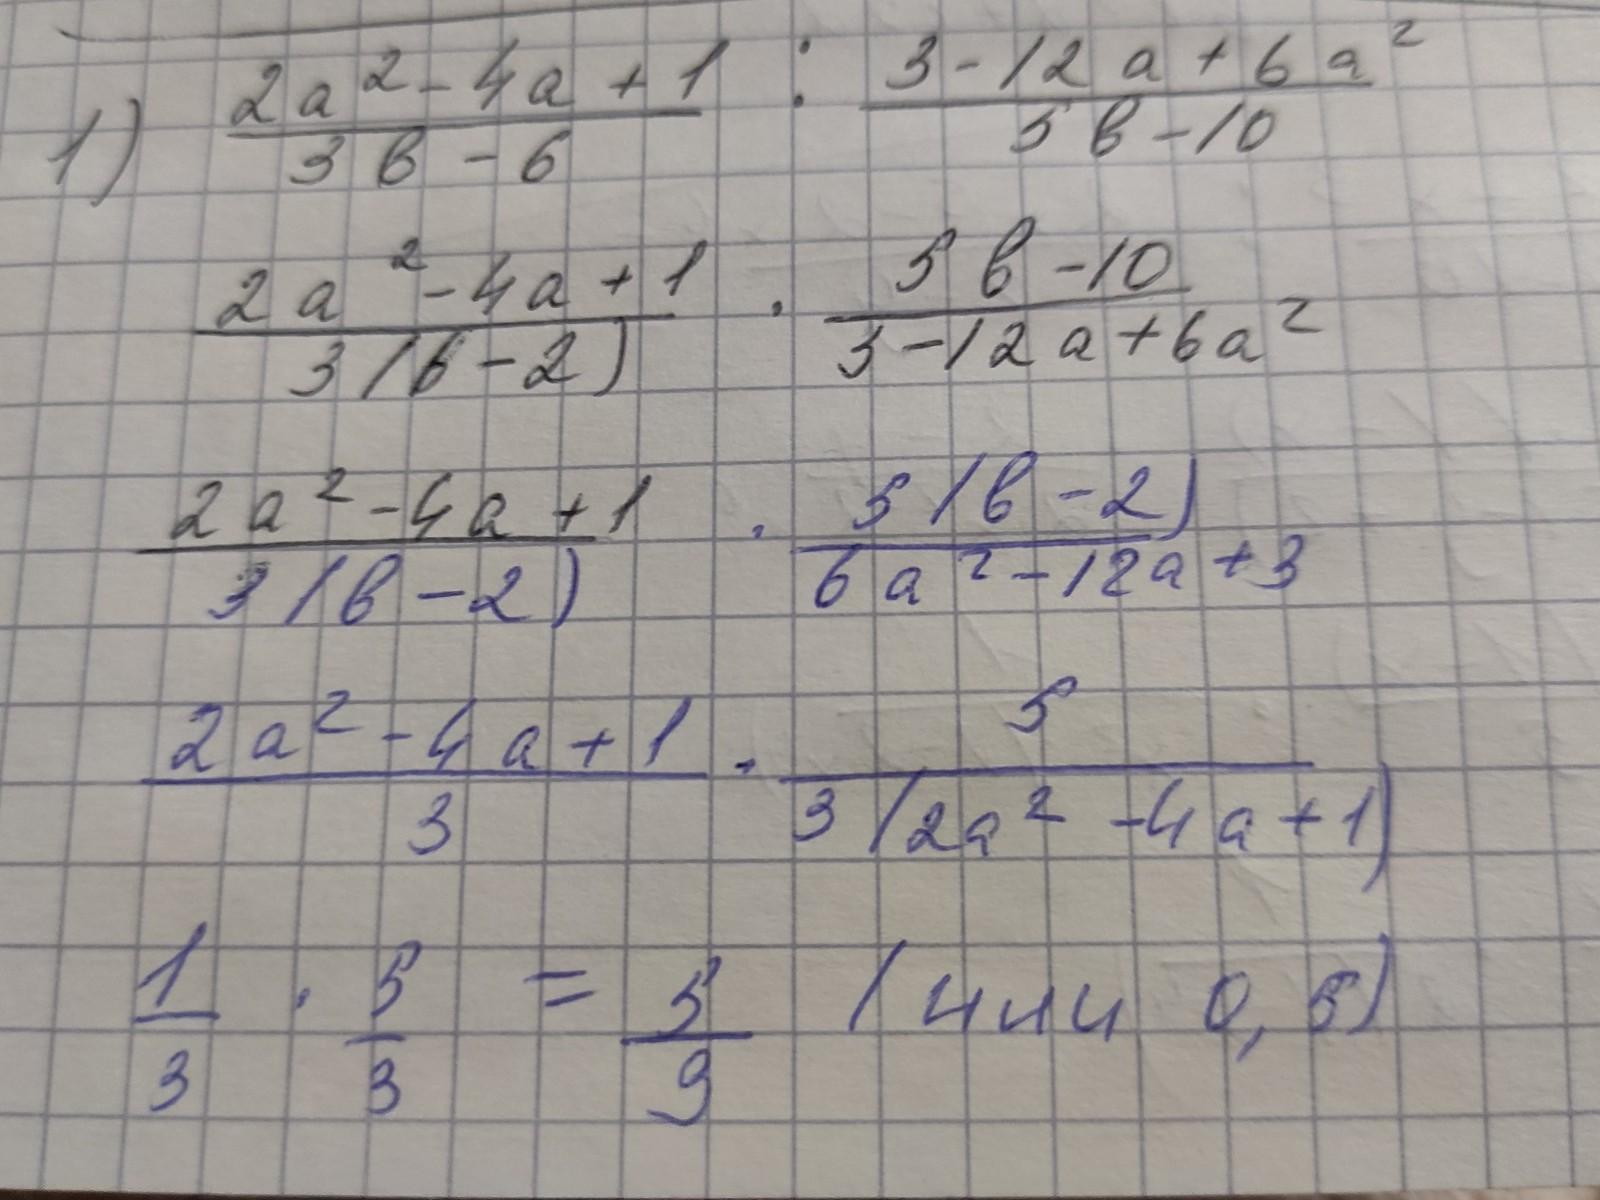 1) (2a² - 4a + 1)/(3в - 6) : (3 - 12a + 6a²)/(5в - 10)
(2a² - 4a + 1)/(3(в - 2)) · (5в - 10)/(3 - 12a + 6a²)
(2a² - 4a + 1)/(3(в - 2)) · (5(в - 2))/(6a² - 12a + 3)
(2a² - 4a + 1)/3 · 5/(3(2a² - 4a + 1))
1/3 · 5/3 = 5/9 (или 0,5)